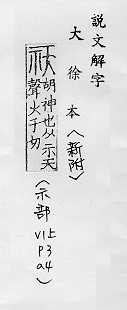 說文解字
大徐本〈新附〉
祆 胡神也从示天
聲火千切
(示部 V1上 P3 a4)